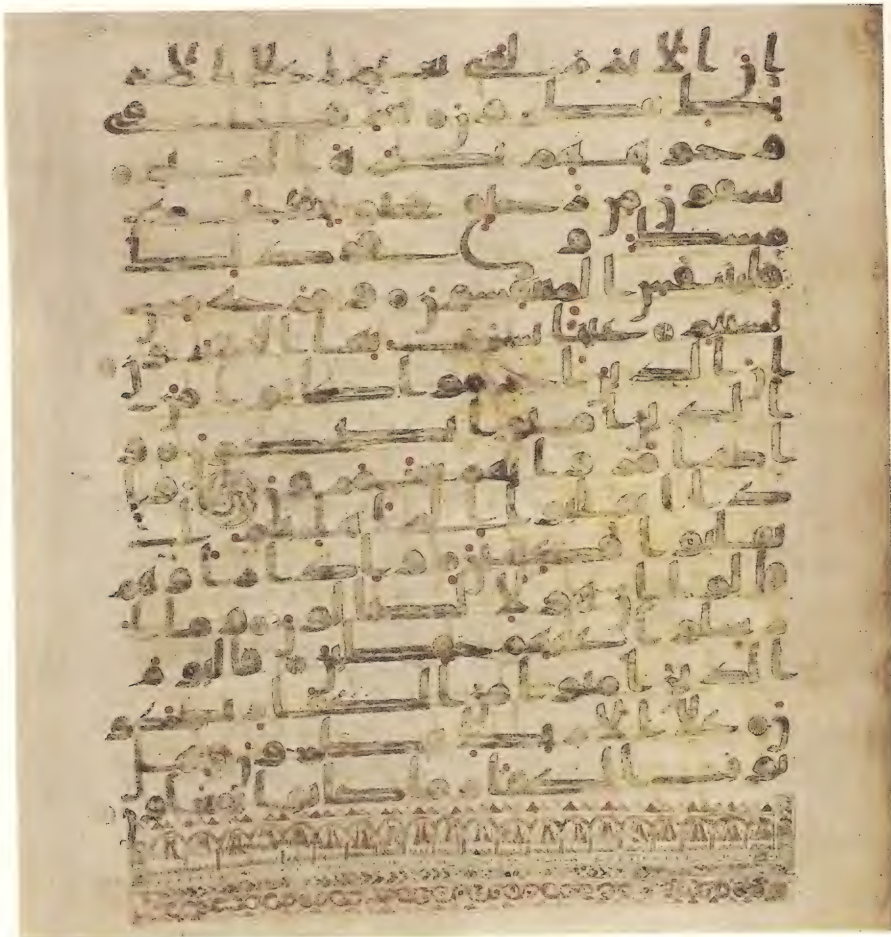 ان الابرار لفى نعيم على الار
ئك ينظرون تعرف فى
وجوههم نضرة النعيم
يسقون من رحيق مختوم ختمه
مسك وفى ذلك
فليتنفس المتنفسون ومزجه من
تسنيم عينا يشرب بها المقربون
ان الذين اجرموا كانوا من
الذين امنوا يضحكون و
اذا مروا بهم يتغمزون واذا
انقلبوا الى اهلهم ا
نقلبوا فكهين واذا راوهم
قالوا ان هولا لضالون وما ا
رسلوا عليهم حفظين فاليوم
الذين امنوا من الكفار يضحكو
ن على الارئك ينظرون هل
ثوب الكفار ما كانوا يفعلون